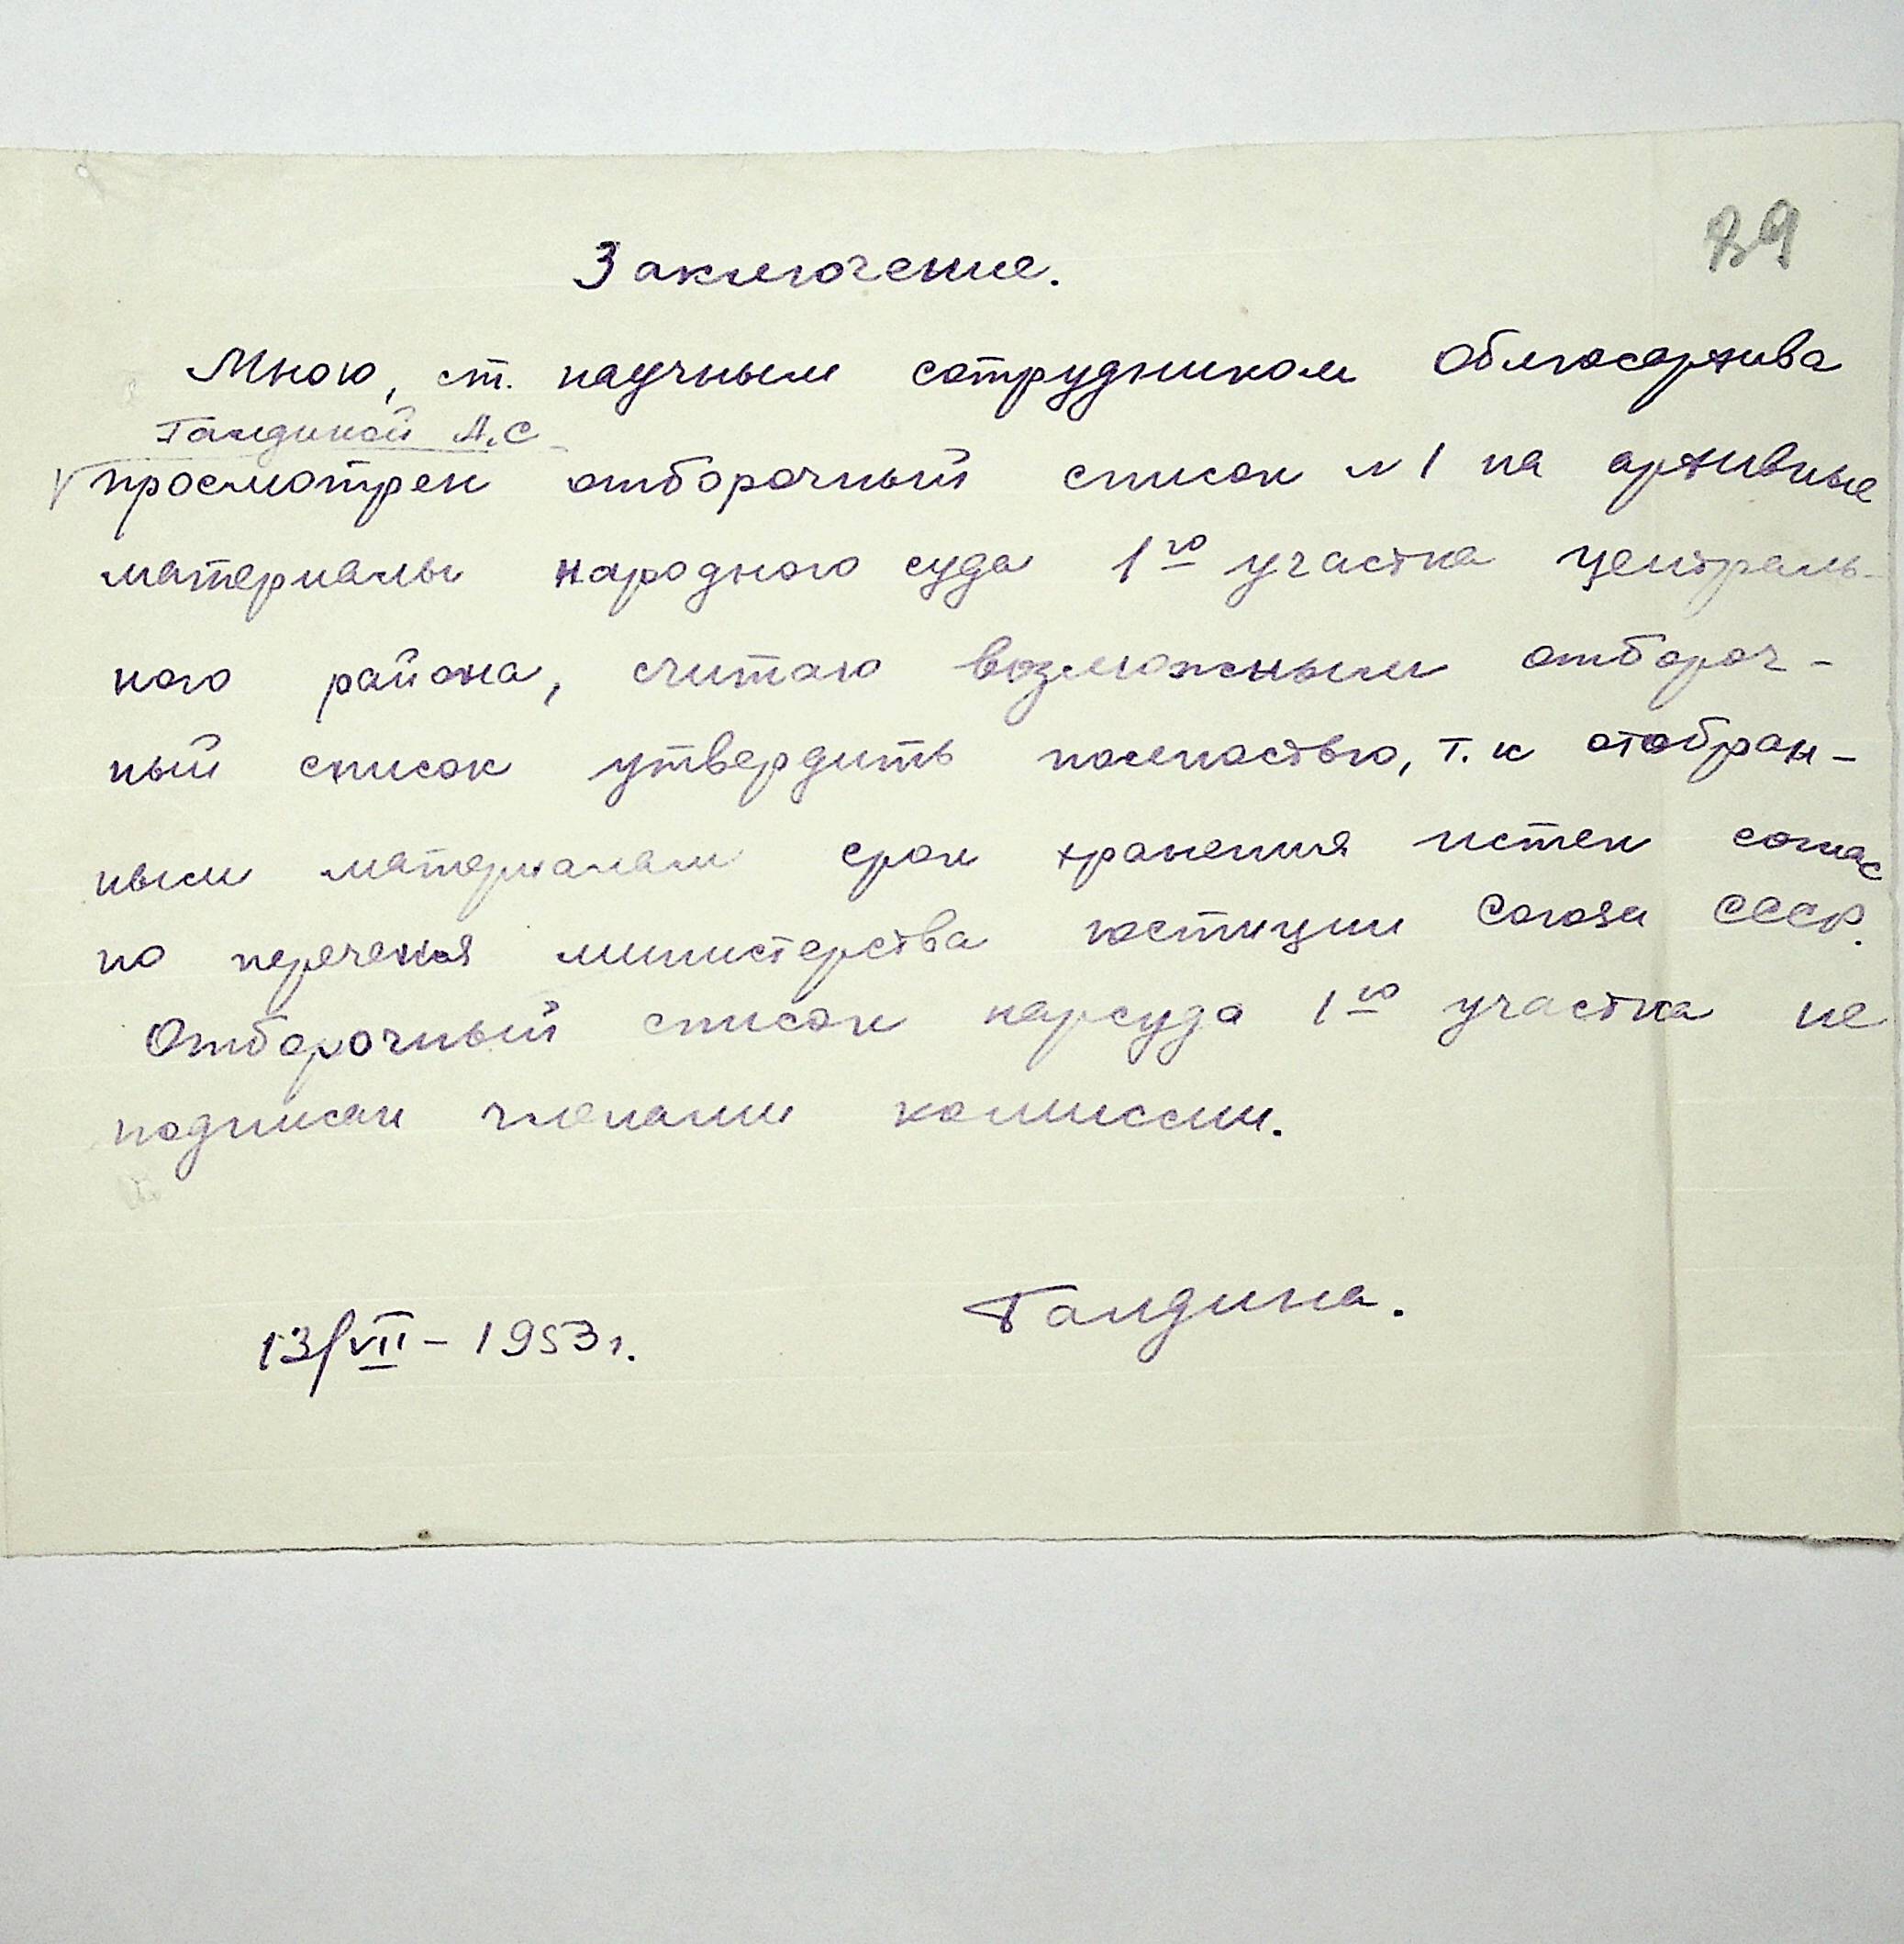 89
Заключение.
Мною, ст. научным сотрудником Облгосархива
Галдиной А.С
V просмотрен отборочный список № 1 на архивные
материалы народного суда 1го участка централь-
ного района, считаю возможным отбороч-
ный список утвердить полностью, т.к отобран-
ным материалам срок хранения истек соглас
но перечня министерства юстиции Союза СССР.
Отборочный список нарсуда 1го участка не
подписан членами комиссии.
13/VII - 1953г.
Галдина.